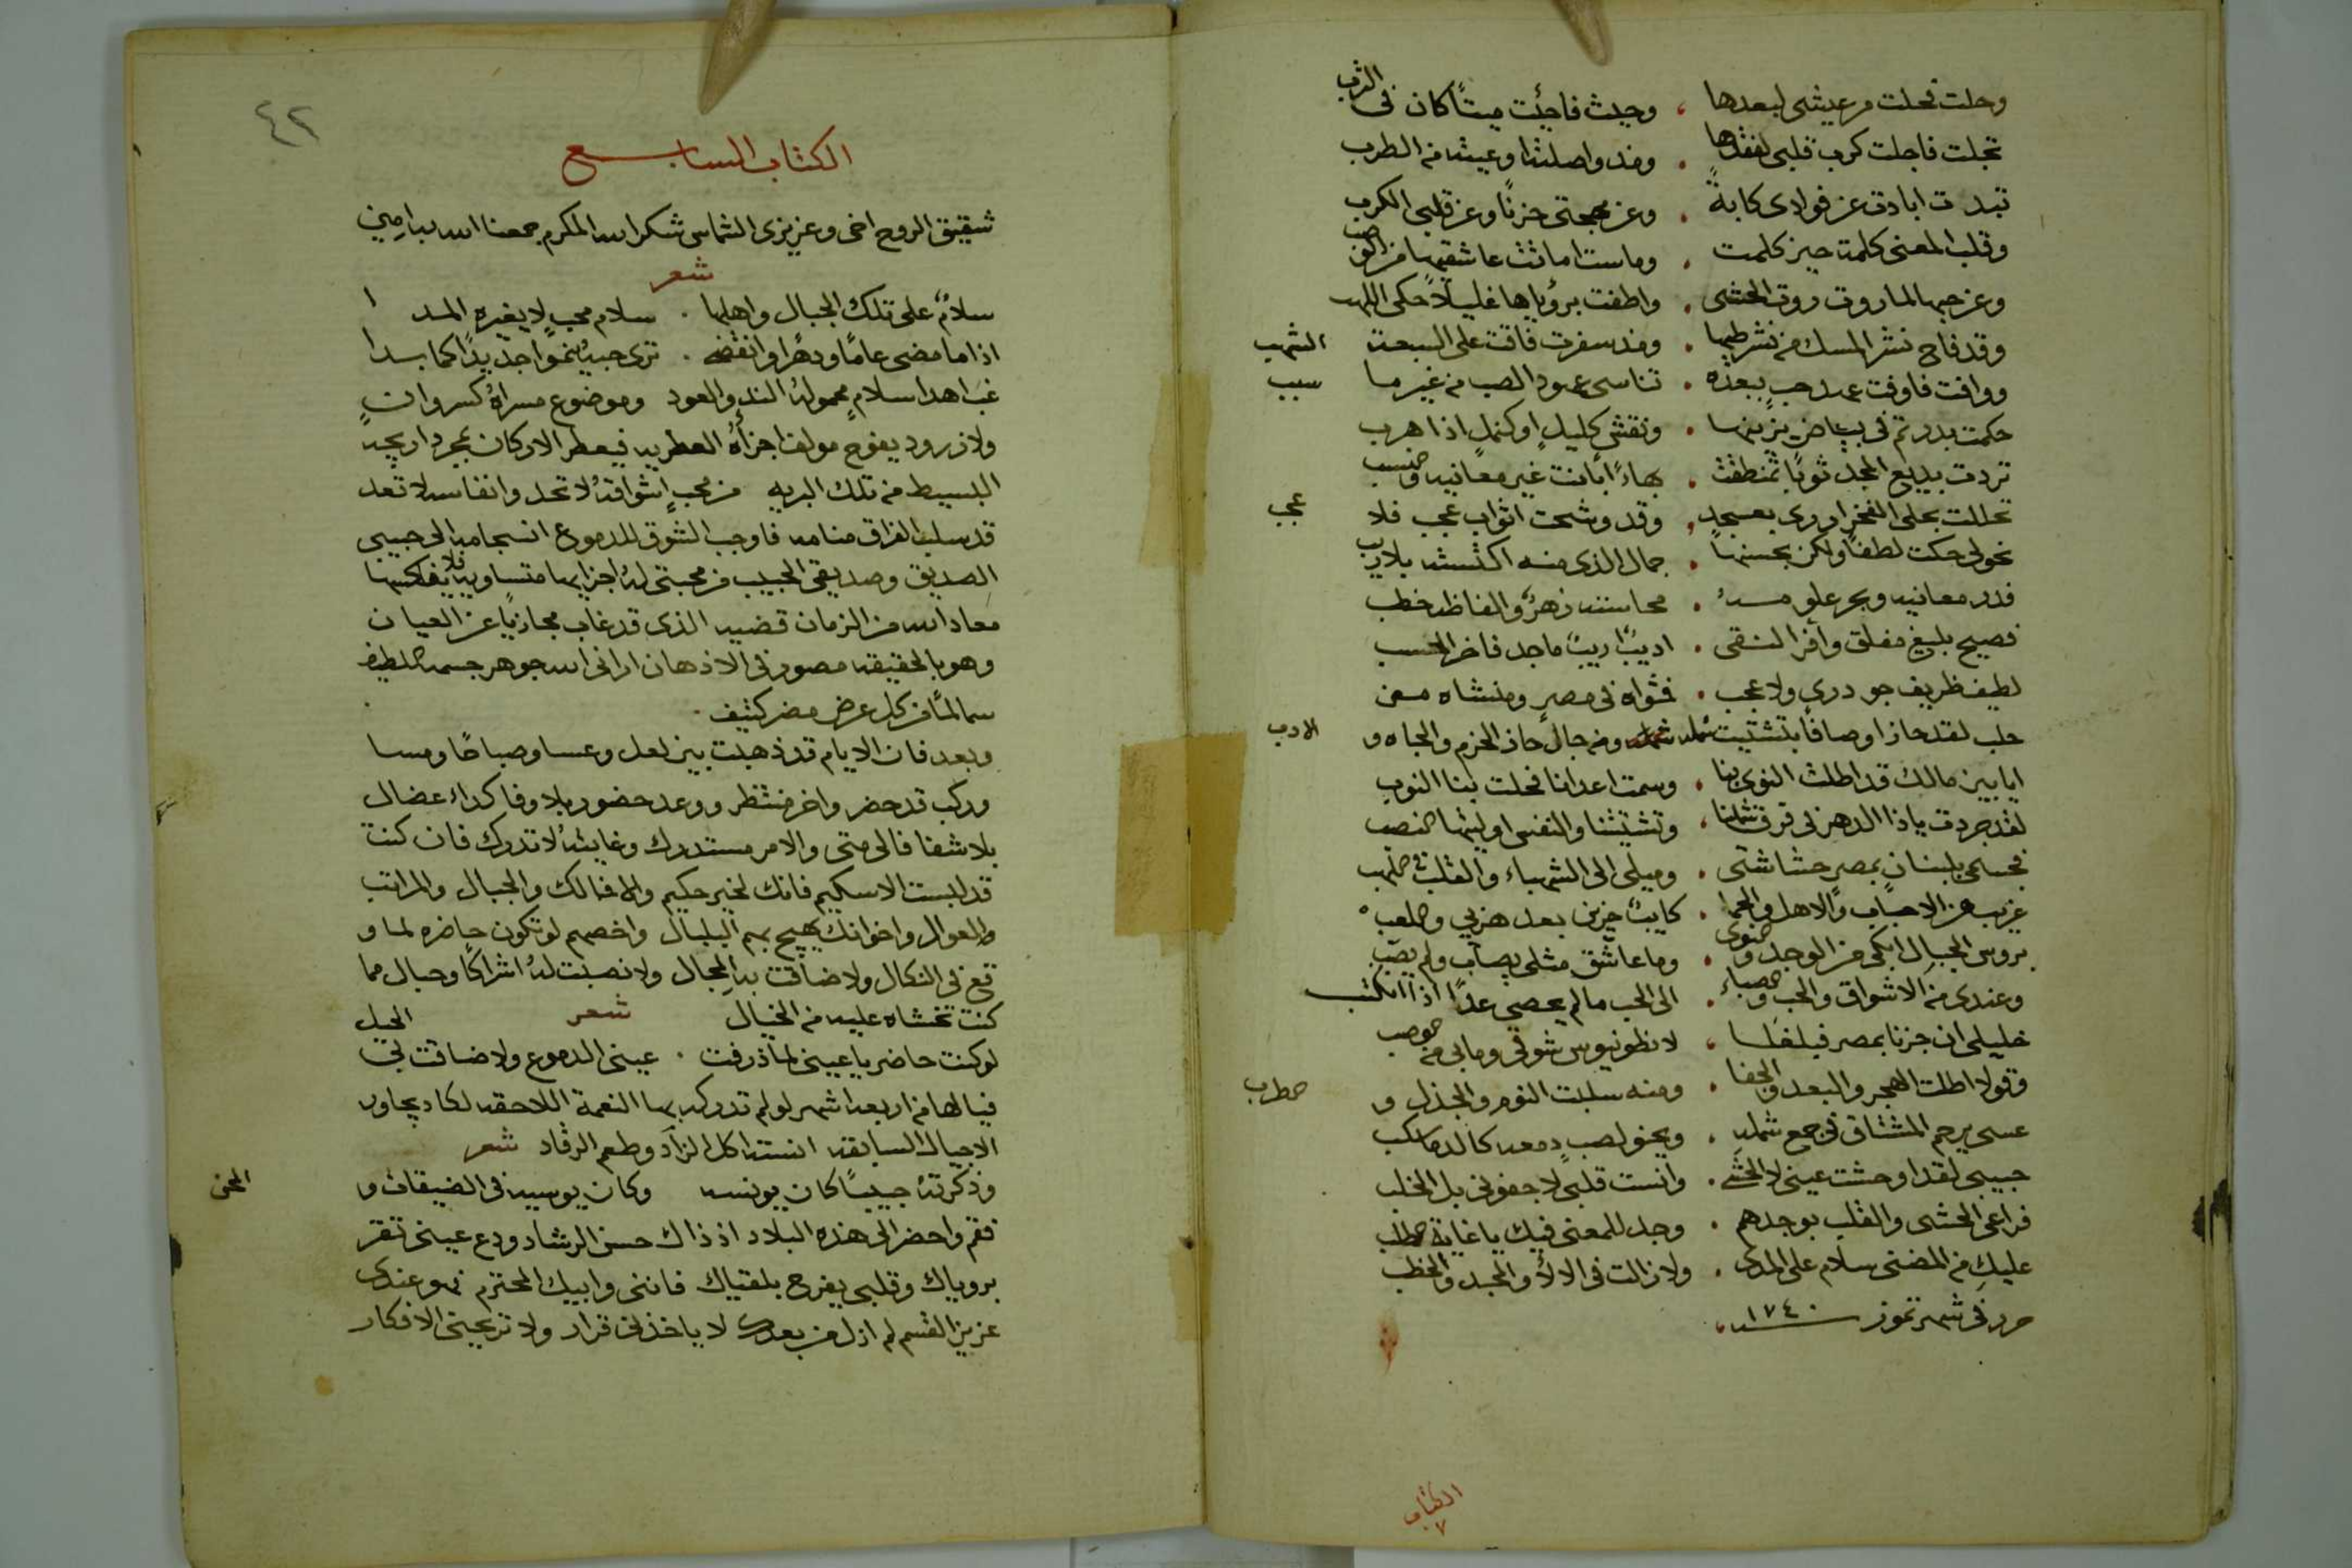 وحلت فحلت مر عيشى لبعدها ، وحيث فاجئت ميتًا كان فى الترب
تجلت فاجلت كرب قلبى لفقدها . ومذ واصلت اوعيت من الطرب
تبدت ابادت عن فوادى كابةً . وعن مهجتى حزنًا وعن قلبى الكرب
وقلب المعنى كلمة حين كلمت . وماست اماتت عاشقيها من
وعن حبها الماروت روت الحشى . واطفت برؤياها غليلًا حكى اللهب
وقد فاح نشر المسك من نشر طيبها . ومذ سفرت فاقت على السبعة الشهب
ووافت فاوفت عهد حب ببعده . تناسى عهود الصب من غير ما سبب
حكمت بدر تم فى بياض يزينها . وتقشى كليل او كنمل اذا هرب
تردت بديع المجد ثوبًا تمنطقت . بهاءً ابانت غير معانيه
تحللت بحلى الفخر اروى بعسجد . وقد وشحت اثواب عجب فلا عجب
نحولى حكت لطفًا ولكن بحسنها . جمال الذى منه اكتست بلا ريب
فدر معانيه وبحر علومه . محاسنه زهرٌ والفاظه خطب
فصيح بليغ مفلق وافر التقى . اديبٌ ريبٌ ماجد فاخر الحسب
لطيف ظريف جودرى ولا عجب . فثواه فى مصر ومنشاه من
حلب لقد حاز اوصافًا بتشتيت شمله ومن حال حاذ الحزم والجاه و الادب
ايا بين مالك قد اطلت النوى بنا . وسمت اعدانا فحلت بنا النوب
لقد جردت ياذا الدهر فى فرق شملنا ، وتشتيتنا والنفس اوليتها النصب
فجسمى بلبنان بمصر حشاشتى . وميلى الى الشهباء والقلب فى لهب
غريب عن الاحباب والاهل والحما . كايبٌ حزين بعد هزبى وملعب
بروس الجبال ابكى من الوجد والنوى . وما عاشق مثلى يصاب ولم يصب
وعندى من الاشواق والحب والصباء . الى الحب ما لم يحصى عدًا اذا انكتب
خليلى ان جزتا بمصر فبلغا ، لانطونيوس شوقى وما بى من
وقولا اطلت الهجر والبعد والجفا . ومنه سلبت النوم والجذل و الطرب
عسى يرحم المشتاق فى جمع شمله . ويحنو لصب دمعه كالدما سكب
حبيبى لقد اوحشت عينى لا الحشى . وانست قلبى لا جفونى بل الخلب
فراعى الحشى والقلب بوجدهم . وجد للمعنى فيك يا غاية الطلب
عليك من المضنى سلام على المدى . ولا زالت فى الالأ والمجد والخطب
حرر فى شهر تموز سنه ١٧٤٠
الكتاب ٧
٤٢
الكتاب السابع
شقيق الروح اخى وعزيزى الشماس شكرالله المكرم جمعنا الله به امين
شعر
سلامٌ على تلك الجبال واهلها . سلام محب لا يغيره المدا
اذا ما مضى عامًا ودهرًا وانقضه . ترى حبهُ ينمو جديدًا كما بدا
غب اهدا سلام محموله الند والعود وموضوع مسراهُ كسروان
ولا زرود يفوح مولف اجزأهُ العطريه فيعطر الاركان بمجرد اريجه
البسيط من تلك البريه من محب اشواقهُ لا تحد وانفاسه لا تعد
قد سلب الفراق منامه فاوجب الشوق للدموع انسجامه الى حبيبى
الصديق وصديقى الحبيب من محبتى لهُ اجزايها متساويه فلا يفاكسها
معاد الله من الزمان قضيه الذى قد غاب مجازيًا عن العيان
وهو بالحقيقه مصور فى الاذهان ارانى الله جوهر جسمه اللطيف
سالمًا من كل عرض مضر كثيف .
وبعد فان الايام قد ذهبت بين لعل وعسا وصباحًا ومسا
وركب قد حضر واخر منتظر ووعد حضور بلا وفا كداء عضال
بلا شفا فالى متى والامر مستدرك وغايتهُ لا تدرك فان كنت
قد لبست الاسكيم فانك لخير حكيم والا فمالك والجبال والمراتب
والعوال واخوانك يهيج بهم البلبال واخصهم لو تكون حاضره لما و
قع فى النكال ولا ضاقت به المجال ولا نصبت لهُ اشراكًا وحبال مما
كنت تخشاه عليه من الخبال شعر
لو كنت حاضر يا عينى لما ذرفت . عينى الدموع ولا ضاقت بى الحيل
فيا لها من اربعة اشهر لو لم تدركه بها النعمة اللاحقه لكاد يجاور
الاجيال السابقه انسته اكل الزاد وطعم الرقاد شعر
وذكرتهُ حبيبًا كان يونسه وكان يوسيه فى الضيقات و المحن
فقم واحضر الى هذه البلاد اذ ذاك حسن الرشاد ودع عينى تقر
بروياك وقلبى يفرح بلقياك فاننى وابيك المحترم فهو عندى
عزيز القسم لم ازل من بعدك لا ياخذنى قرار ولا تريحنى الافكار